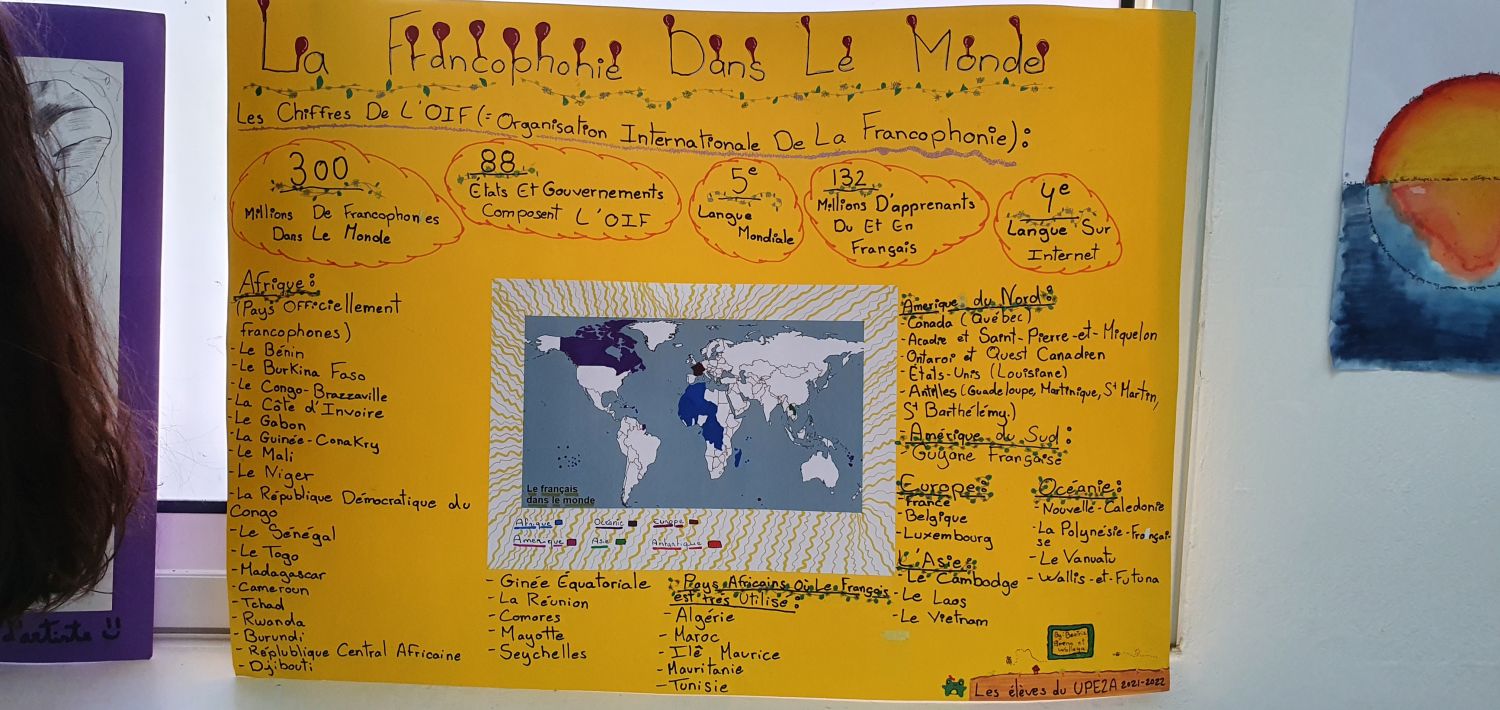 La Francophonie Dans Le Monde
Les Chiffres De L'OIF (= Organisation Internationale De La Francophonie) :
300
Millions De Francophones
Dans Le Monde
88
États Et Gouvernements
Composent L'OIF
5e
Langue
Mondiale
132
Millions D'apprenants
Du Et En
Français
4e
Langue Sur
Internet
Afrique :
(Pays Officiellement
francophones)
- Le Bénin
- Le Burkina Faso
- Le Congo-Brazzaville
- La Côte d'Invoire
- Le Gabon
- La Guinée-Conakry
- Le Mali
- Le Niger
- La République Démocratique du
Congo
- Le Sénégal
- Le Togo
- Madagascar
- Cameroun
- Tchad
- Rwanda
- Burundi
- Républlique Central Africaine
- Djibouti
Le français
dans le monde
Afrique
Océanie
Europe
Amérique
Asie
Antartique
- Ginée Équatoriale
- La Réunion
- Comores
- Mayotte
- Seychelles
Pays Africains Où Le Français
est très Utilisé :
- Algérie
- Maroc
- Ilê Maurice
- Mauritanie
- Tunisie
Amerique du Nord :
- Canada (Québec)
- Acadre et Saint-Pierre-et-Miquelon
- Ontaroi et Quest Canadien
- États-Unis (Louisiane)
- Antilles (Guadeloupe, Martinique, St Martin,
St Barthélémy.)
- Amérique du Sud :
- Guyane Française
Europe :
- France
- Belgique
- Luxembourg
L'Asie :
- Le Cambodge
- Le Laos
- Le Vietnam
Océanie :
- Nouvelle-Caledonie
- La Polynésie-Françai-
se
- Le Vanuatu
- Wallis-et-Futuna
By: Beatriz
et
Les élèves du UPE2A 2021-2022
d'artiste